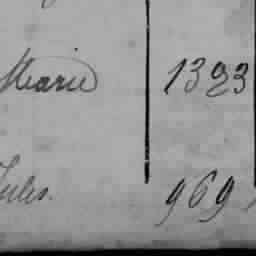 Marie 1323
Jules. 969